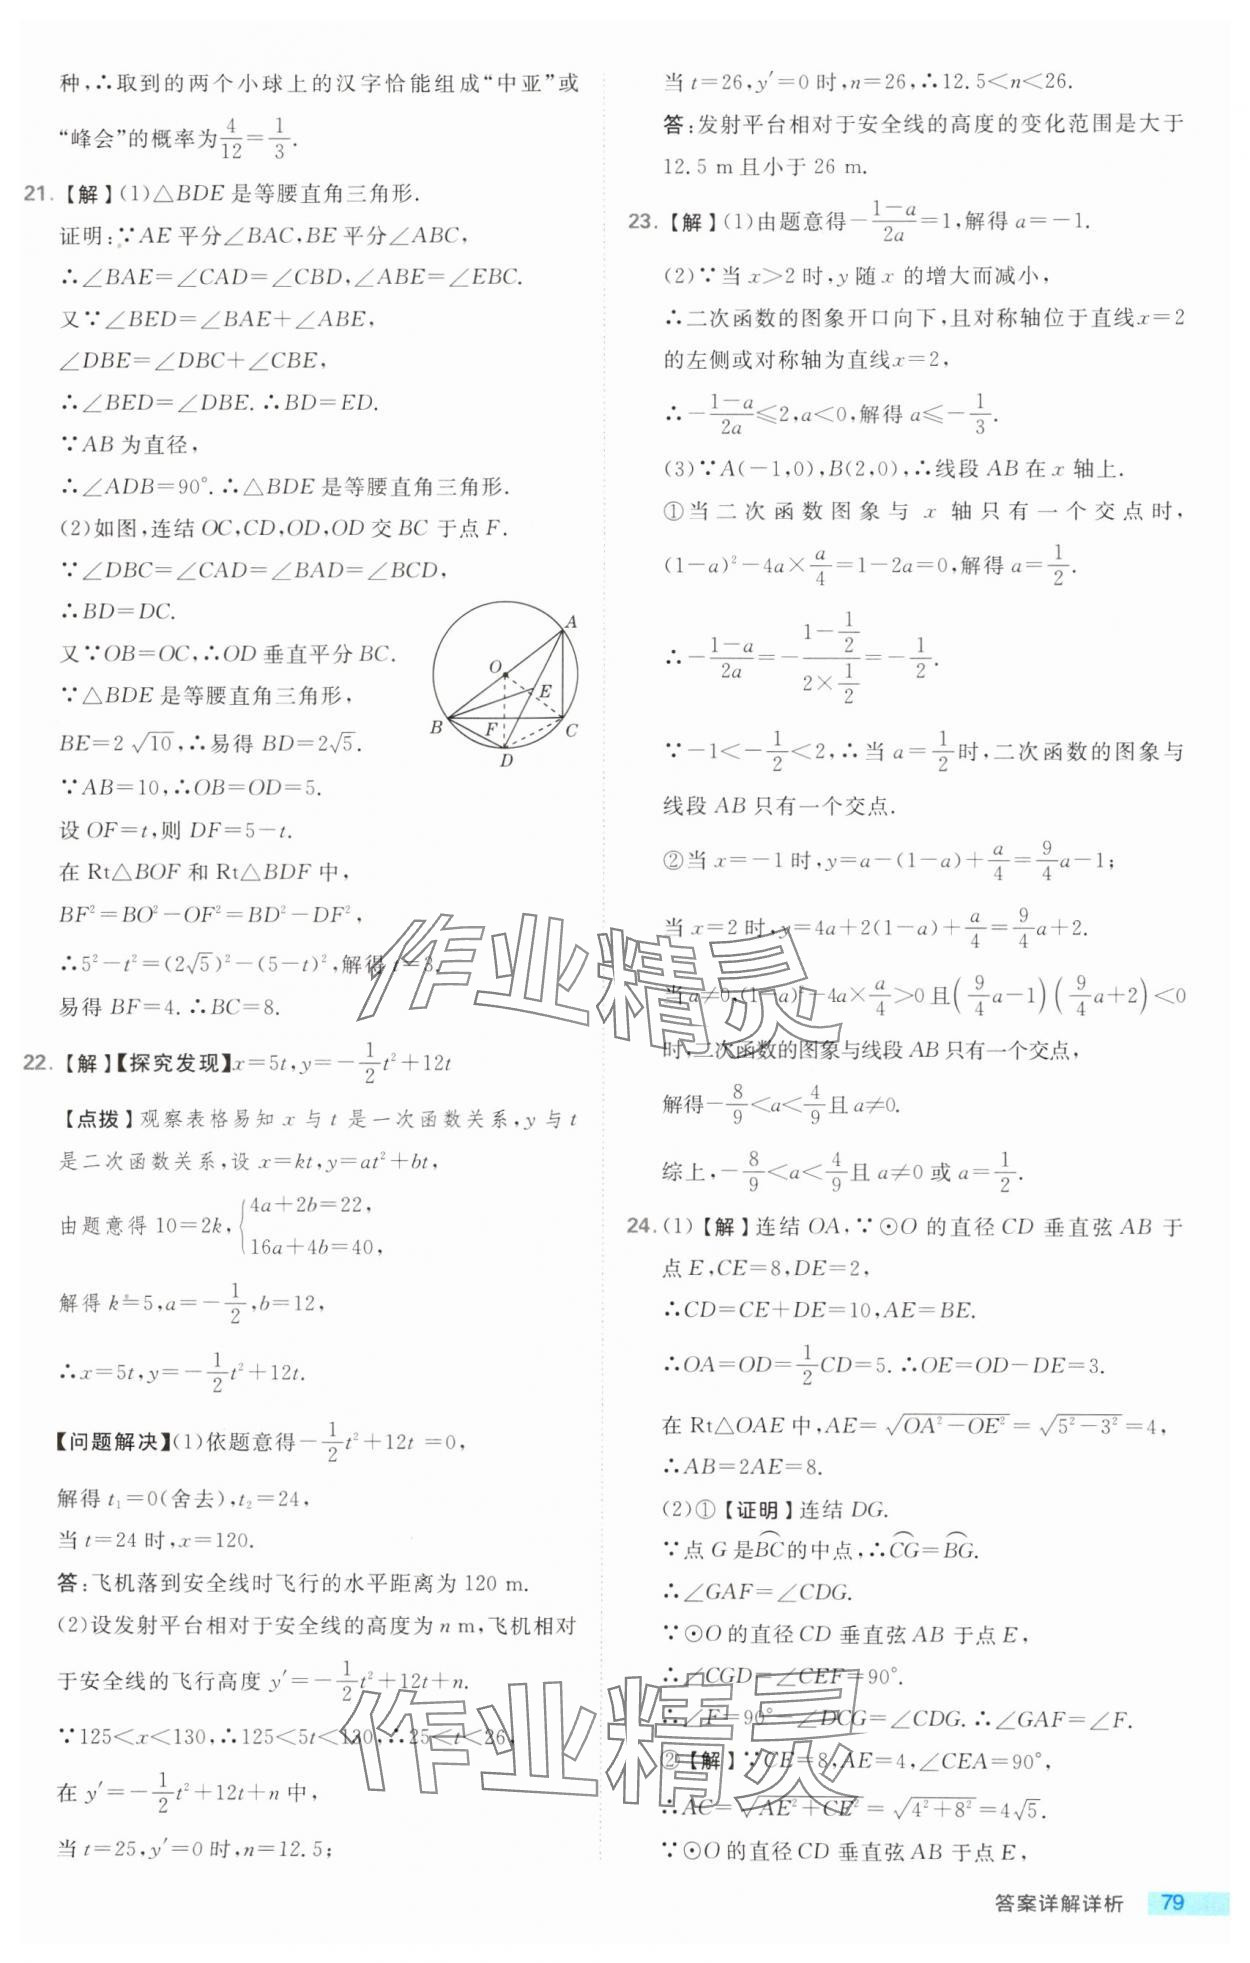 种,∴取到的两个小球上的汉字恰能组成“中亚”或
“峰会”的概率为4/12=1/3.
21.【解】(1)△BDE是等腰直角三角形.
证明:∵AE平分∠BAC,BE平分∠ABC,
∴∠BAE=∠CAD=∠CBD,∠ABE=∠EBC.
又∵∠BED=∠BAE+∠ABE,
∠DBE=∠DBC+∠CBE,
∴∠BED=∠DBE.∴BD=ED.
∵AB为直径,
∴∠ADB=90°.∴△BDE是等腰直角三角形.
(2)如图,连结OC,CD,OD,OD交BC于点F.
∵∠DBC=∠CAD=∠BAD=∠BCD,
∴BD=DC.
又∵OB=OC,∴OD垂直平分BC.
∵△BDE是等腰直角三角形,
BE=2√10,∴易得BD=2√5.
∵AB=10,∴OB=OD=5.
设OF=t,则DF=5-t.
在Rt△BOF和Rt△BDF中,
BF²=BO²-OF²=BD²-DF²,
∴5²-t²=(2√5)²-(5-t)²,解得t=3,
易得BF=4.∴BC=8.
A
O
E
B
F
C
D
22.【解】【探究发现】x=5t,y=-1/2t²+12t
【点拨】观察表格易知x与t是一次函数关系,y与t
是二次函数关系,设x=kt,y=at²+bt,
由题意得10=2k,{4a+2b=22,
16a+4b=40,
解得k=5,a=-1/2,b=12,
∴x=5t,y=-1/2t²+12t.
【问题解决】(1)依题意得-1/2t²+12t=0,
解得t₁=0(舍去),t₂=24,
当t=24时,x=120.
答:飞机落到安全线时飞行的水平距离为120 m.
(2)设发射平台相对于安全线的高度为n m,飞机相对
于安全线的飞行高度y′=-1/2t²+12t+n.
∵125<x<130,∴125<5t<130,∴25<t<26,
在y′=-1/2t²+12t+n中,
当t=25,y′=0时,n=12.5;
当t=26,y′=0时,n=26,∴12.5<n<26.
答:发射平台相对于安全线的高度的变化范围是大于
12.5 m且小于26 m.
23.【解】(1)由题意得-(1-a)/2a=1,解得a=-1.
(2)∵当x>2时,y随x的增大而减小,
∴二次函数的图象开口向下,且对称轴位于直线x=2
的左侧或对称轴为直线x=2,
∴-(1-a)/2a≤2,a<0,解得a≤-1/3.
(3)∵A(-1,0),B(2,0),∴线段AB在x轴上.
①当二次函数图象与x轴只有一个交点时,
(1-a)²-4a×a/4=1-2a=0,解得a=1/2.
∴-(1-a)/2a=-(1-1/2)/(2×1/2)=-1/2.
∵-1<-1/2<2,∴当a=1/2时,二次函数的图象与
线段AB只有一个交点.
②当x=-1时,y=a-(1-a)+a/4=9/4a-1;
当x=2时,y=4a+2(1-a)+a/4=9/4a+2.
当a≠0,(1-a)²-4a×a/4>0且(9/4a-1)(9/4a+2)<0
时,二次函数的图象与线段AB只有一个交点,
解得-8/9<a<4/9且a≠0.
综上,-8/9<a<4/9且a≠0或a=1/2.
24.(1)【解】连结OA,∵⊙O的直径CD垂直弦AB于
点E,CE=8,DE=2,
∴CD=CE+DE=10,AE=BE.
∴OA=OD=1/2CD=5.∴OE=OD-DE=3.
在Rt△OAE中,AE=√(OA²-OE²)=√(5²-3²)=4,
∴AB=2AE=8.
(2)①【证明】连结DG.
∵点G是⌒BC的中点,∴⌒CG=⌒BG.
∴∠GAF=∠CDG.
∵⊙O的直径CD垂直弦AB于点E,
∴∠CGD=∠CEF=90°.
∴∠F=90°-∠DCG=∠CDG.∴∠GAF=∠F.
②【解】∵CE=8,AE=4,∠CEA=90°,
∴AC=√(AE²+CE²)=√(4²+8²)=4√5.
∵⊙O的直径CD垂直弦AB于点E,
作业精灵
作业精灵
答案详解详析 79